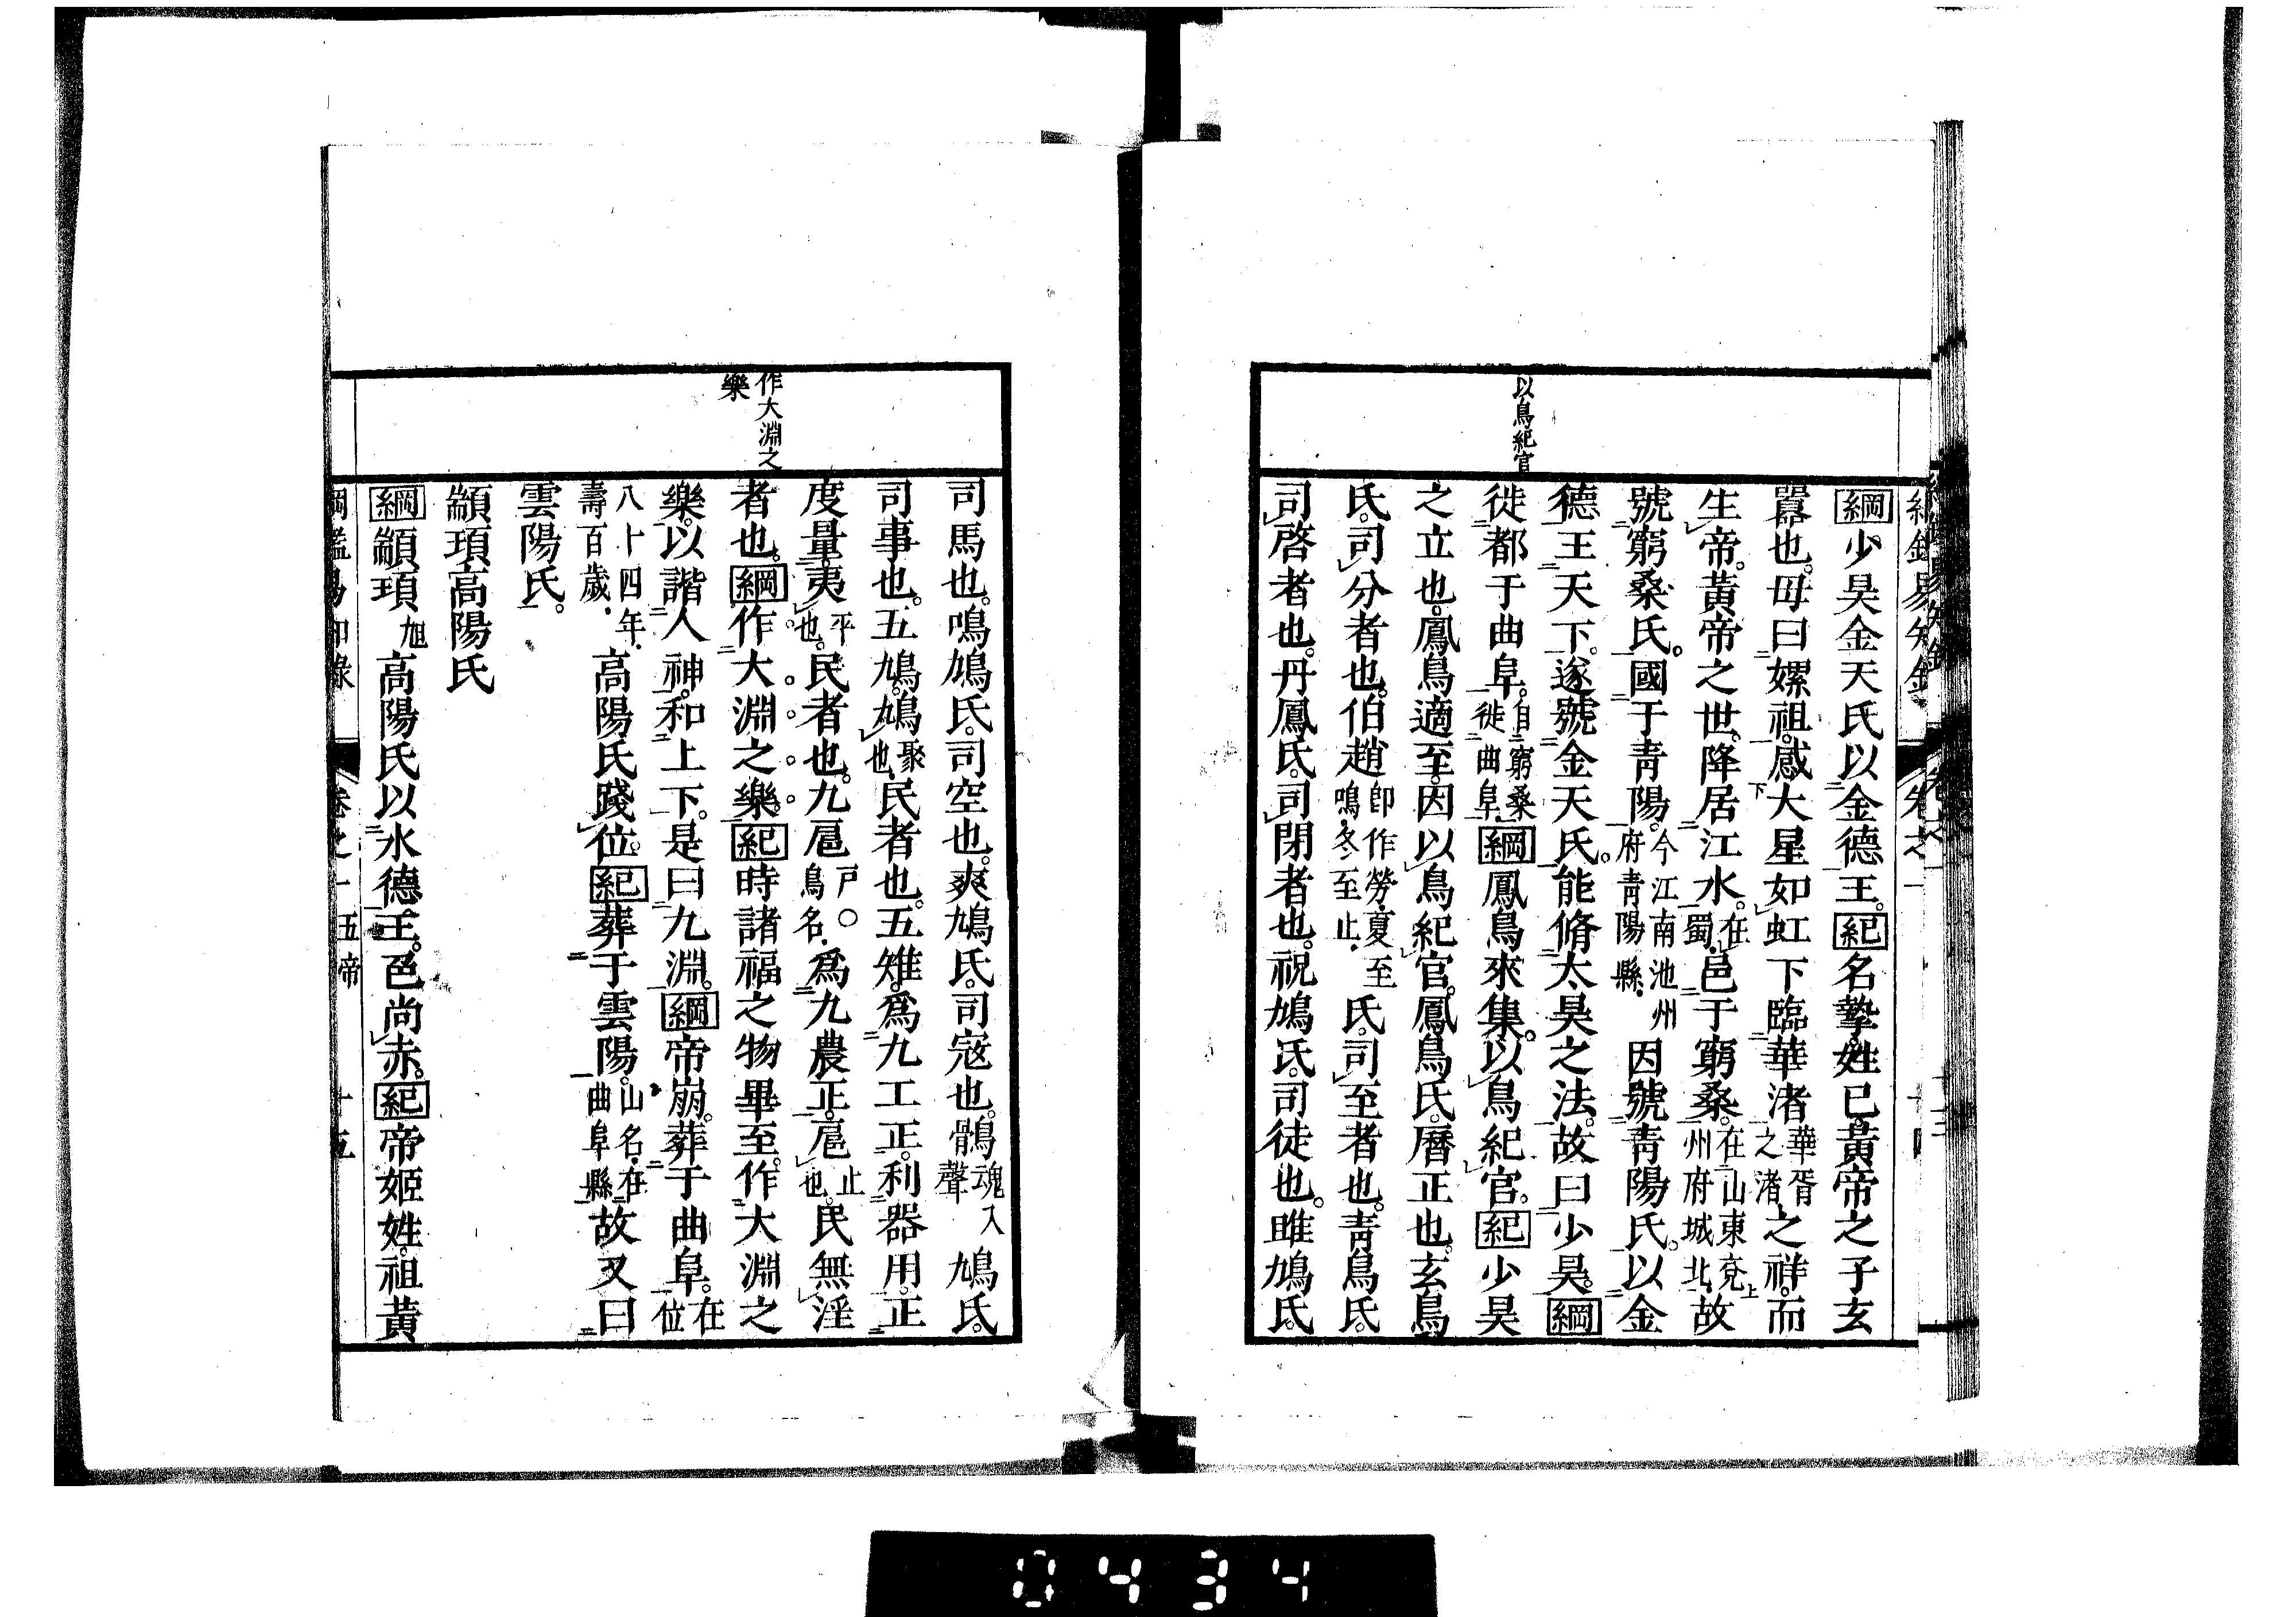 以鳥紀官
綱少昊金天氏以金德王。紀名摯。姓已。黃帝之子玄
囂也。母曰嫘祖。感大星如虹下臨華渚華胥之渚之祥。而
生帝。黃帝之世。降居江水。在蜀。邑于窮桑。在山東兗州府城北。故
號窮桑氏。國于青陽。今江南池州府青陽縣。因號青陽氏。以金
德王天下。遂號金天氏。能脩太昊之法。故曰少昊。綱
徙都于曲阜。自窮桑徙曲阜。綱鳳鳥來集。以鳥紀官。紀少昊
之立也。鳳鳥適至。因以鳥紀官。鳳鳥氏。曆正也。玄鳥
氏。司分者也。伯趙卽作勞。夏至鳴。冬至止。氏。司至者也。青鳥氏。
司啓者也。丹鳳氏。司閉者也。祝鳩氏。司徒也。雎鳩氏。
作大淵之
樂
司馬也。鳲鳩氏。司空也。爽鳩氏。司寇也。鶻魂入聲鳩氏。
司事也。五鳩。鳩聚也。民者也。五雉。爲九工正。利器用。正
度量。夷平也。民者也。九扈戸〇鳥名。爲九農正。扈止也。民無淫
者也。綱作大淵之樂。紀時諸福之物畢至。作大淵之
樂。以諧人神。和上下。是曰九淵。綱帝崩。葬于曲阜。在位
八十四年。壽百歲。高陽氏踐位。紀葬于雲陽。山名。在曲阜縣。故又曰
雲陽氏。
顓頊高陽氏
綱顓頊旭高陽氏以水德王。色尚赤。紀帝姬姓。祖黃
卷之一 五帝 十五